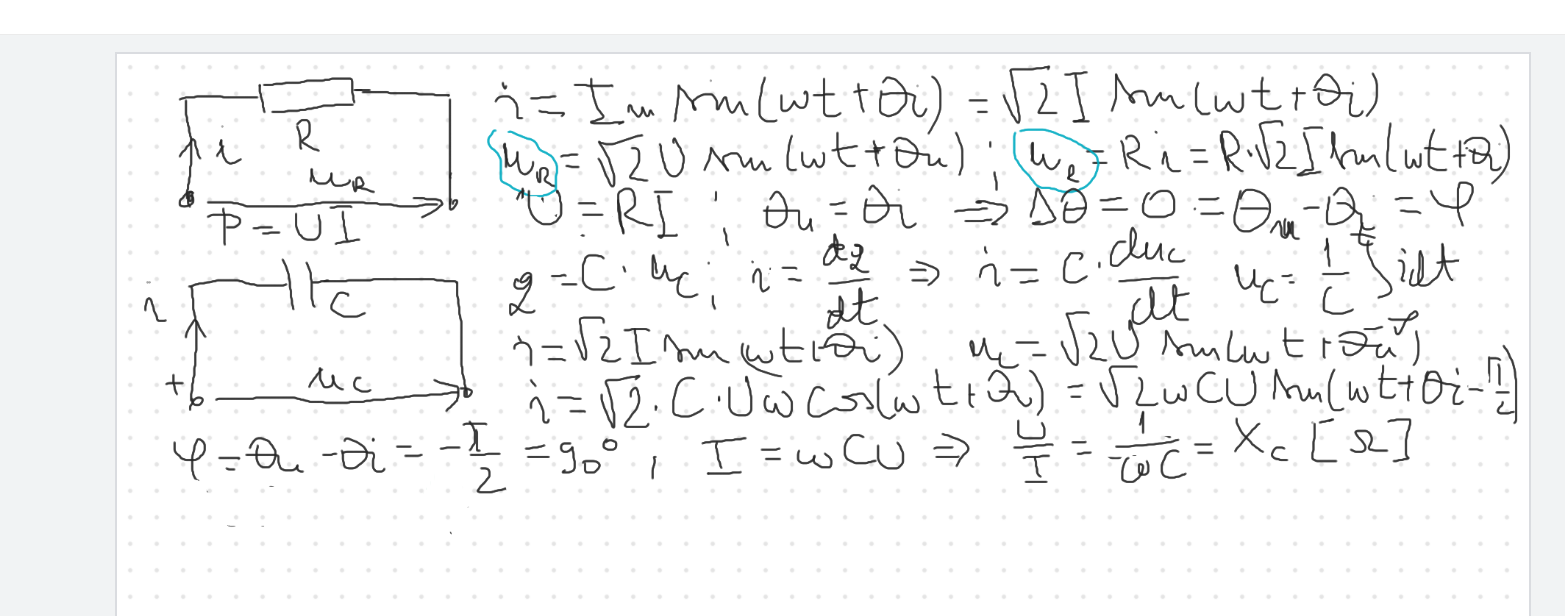 i = I_m sin(ωt + θi) = √2 I sin(ωt + θi)
R
i
u_R = √2 U sin(ωt + θu) ; u_R = R i = R·√2 I sin(ωt + θi)
u_R
U = RI ; θu = θi ⇒ Δθ = 0 = θu - θi = φ
P = UI
q = C · u_C ; i = dq/dt ⇒ i = C · du_C/dt u_C = 1/C ∫ i dt
i
C
i = √2 I sin(ωt + θi) u_C = √2 U sin(ωt + θu)
+ u_C
i = √2 · C · U ω cos(ωt + θi) = √2 ω C U sin(ωt + θi - π/2)
φ = θu - θi = -π/2 = 90° ; I = ωCU ⇒ U/I = 1/ωC = X_C [Ω]